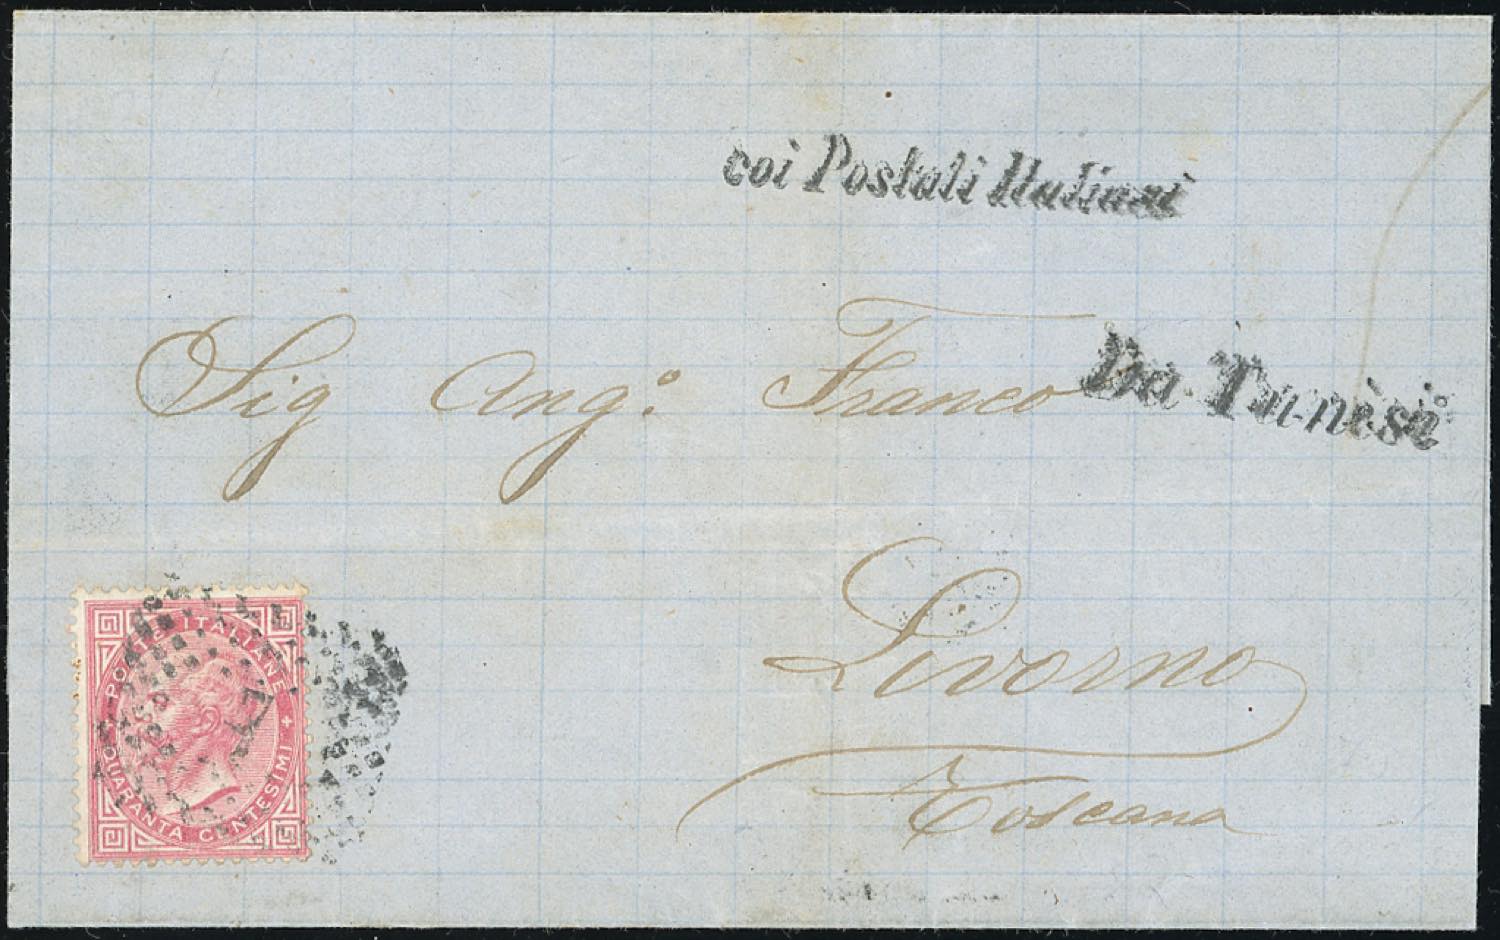 coi Postali Italiani
Da Tunisi
Sig Ang.º Franco
Livorno
Toscana
POSTE ITALIANE
QUARANTA CENTESIMI